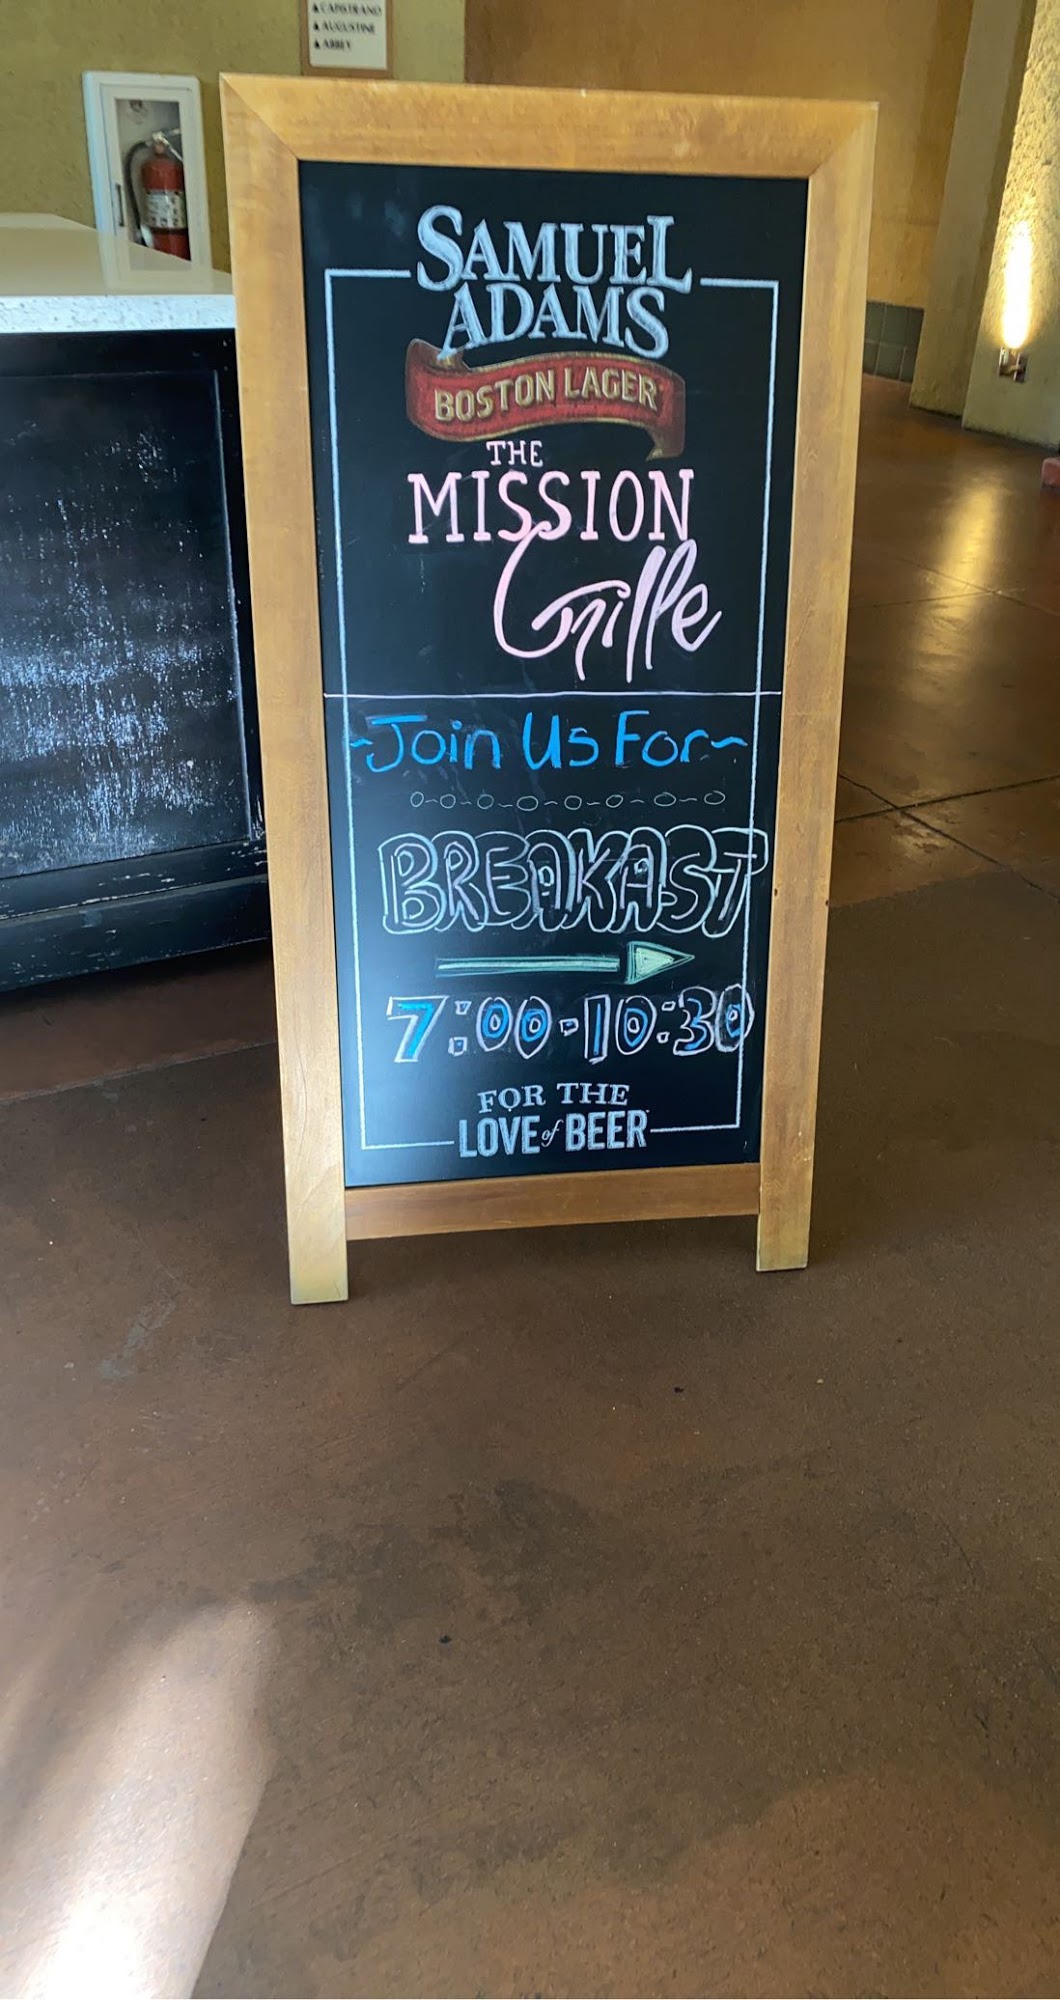 ▲ CAPISTRANO
▲ AUGUSTINE
▲ ABBEY
SAMUEL
ADAMS
BOSTON LAGER
THE
MISSION
Grille
~Join Us For~
BREAKAST
7:00-10:30
FOR THE
LOVE of BEER